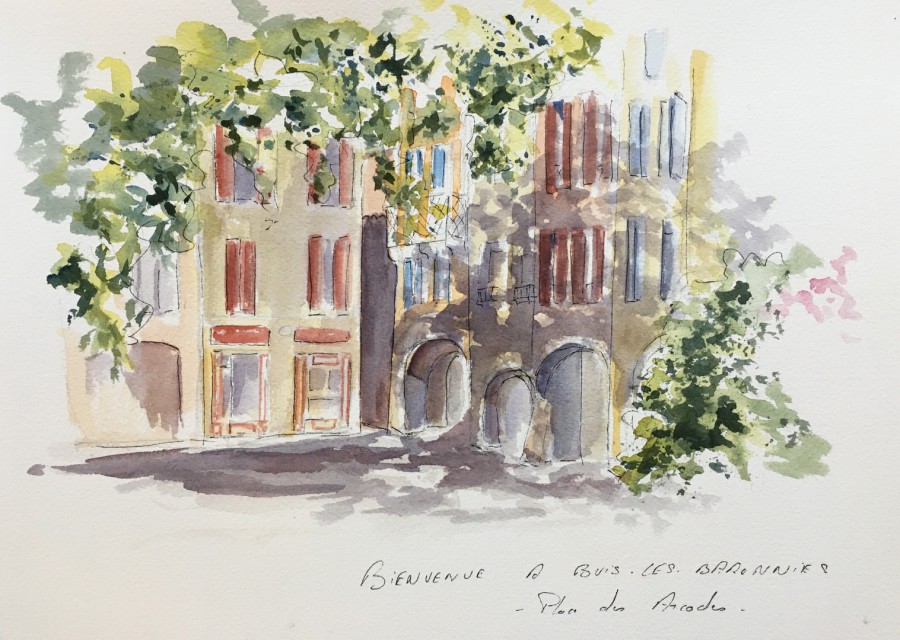 BIENVENUE A BUIS.LES.BARONNIES
- Place des Arcades -